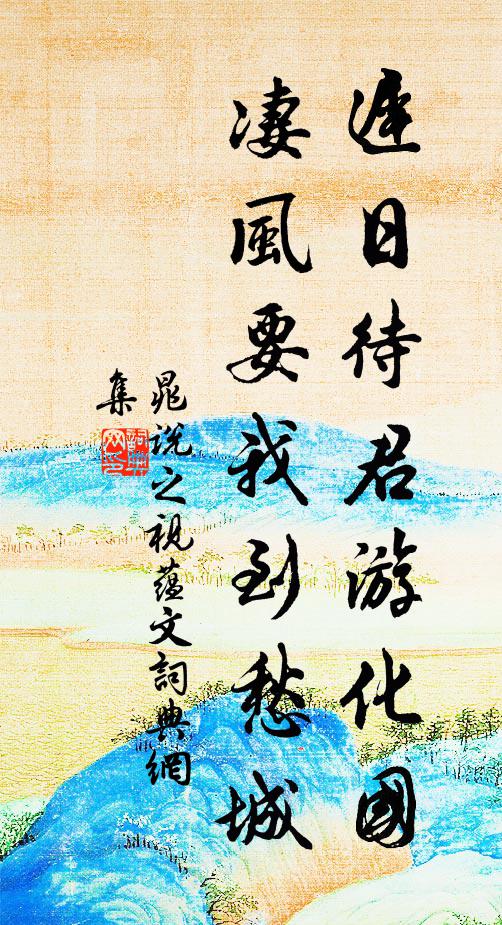 遲日待君游化國
凄風要我到愁城
晁說之視蘊文詞典網
集